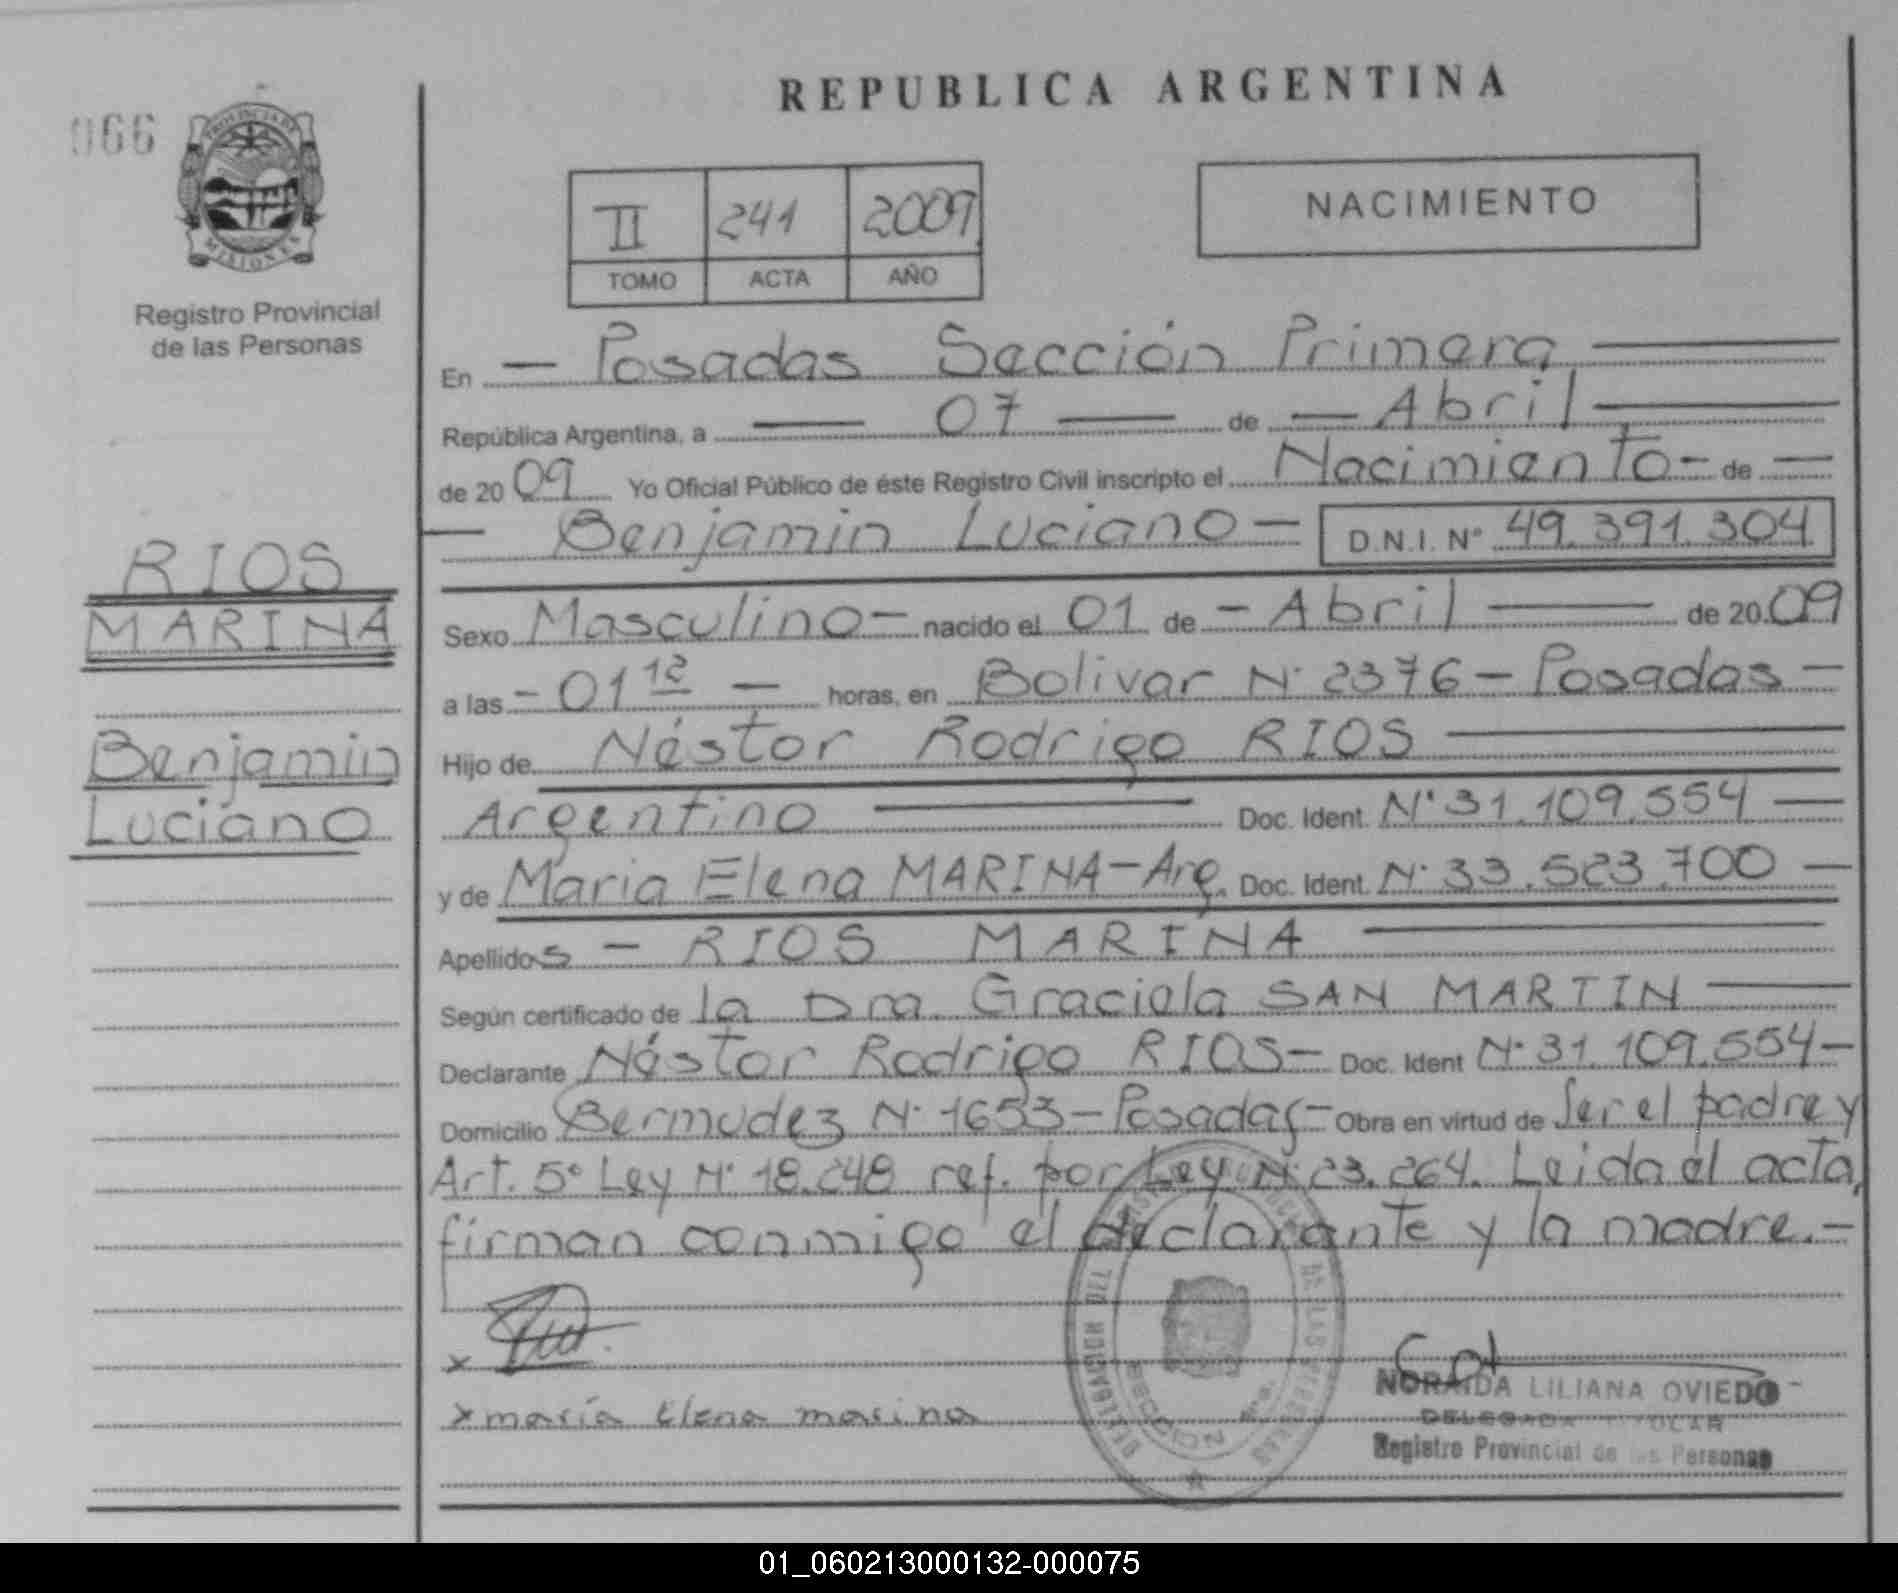 REPUBLICA ARGENTINA
066
PROVINCIA DE
MISIONES
Registro Provincial
de las Personas
II 241 2009
TOMO ACTA AÑO
NACIMIENTO
En — Posadas Sección Primera —
República Argentina, a — 07 — de — Abril —
de 2009 Yo Oficial Público de éste Registro Civil inscripto el Nacimiento - de —
— Benjamin Luciano — D.N.I. N° 49.391.304
RIOS
MARINA
Benjamin
Luciano
Sexo Masculino - nacido el 01 de - Abril — de 2009
a las - 01 12 — horas, en Bolivar N° 2376 - Posadas -
Hijo de Néstor Rodrigo RIOS —
Argentino — Doc. Ident. N° 31.109.554 —
y de Maria Elena MARINA - Arg. Doc. Ident. N° 33.523.700 —
Apellidos - RIOS MARINA —
Según certificado de la Dra. Graciela SAN MARTIN —
Declarante Néstor Rodrigo RIOS - Doc. Ident N° 31.109.554 -
Domicilio Bermudez N° 1653 - Posadas - Obra en virtud de Ser el padre y
Art. 5° Ley N° 18.248 ref. por Ley N° 23.264. Leida el acta,
firman conmigo el declarante y la madre. -
x
x maría Elena marina
NORAIDA LILIANA OVIEDO
DELEGADA TITULAR
Registro Provincial de las Personas
01_060213000132-000075